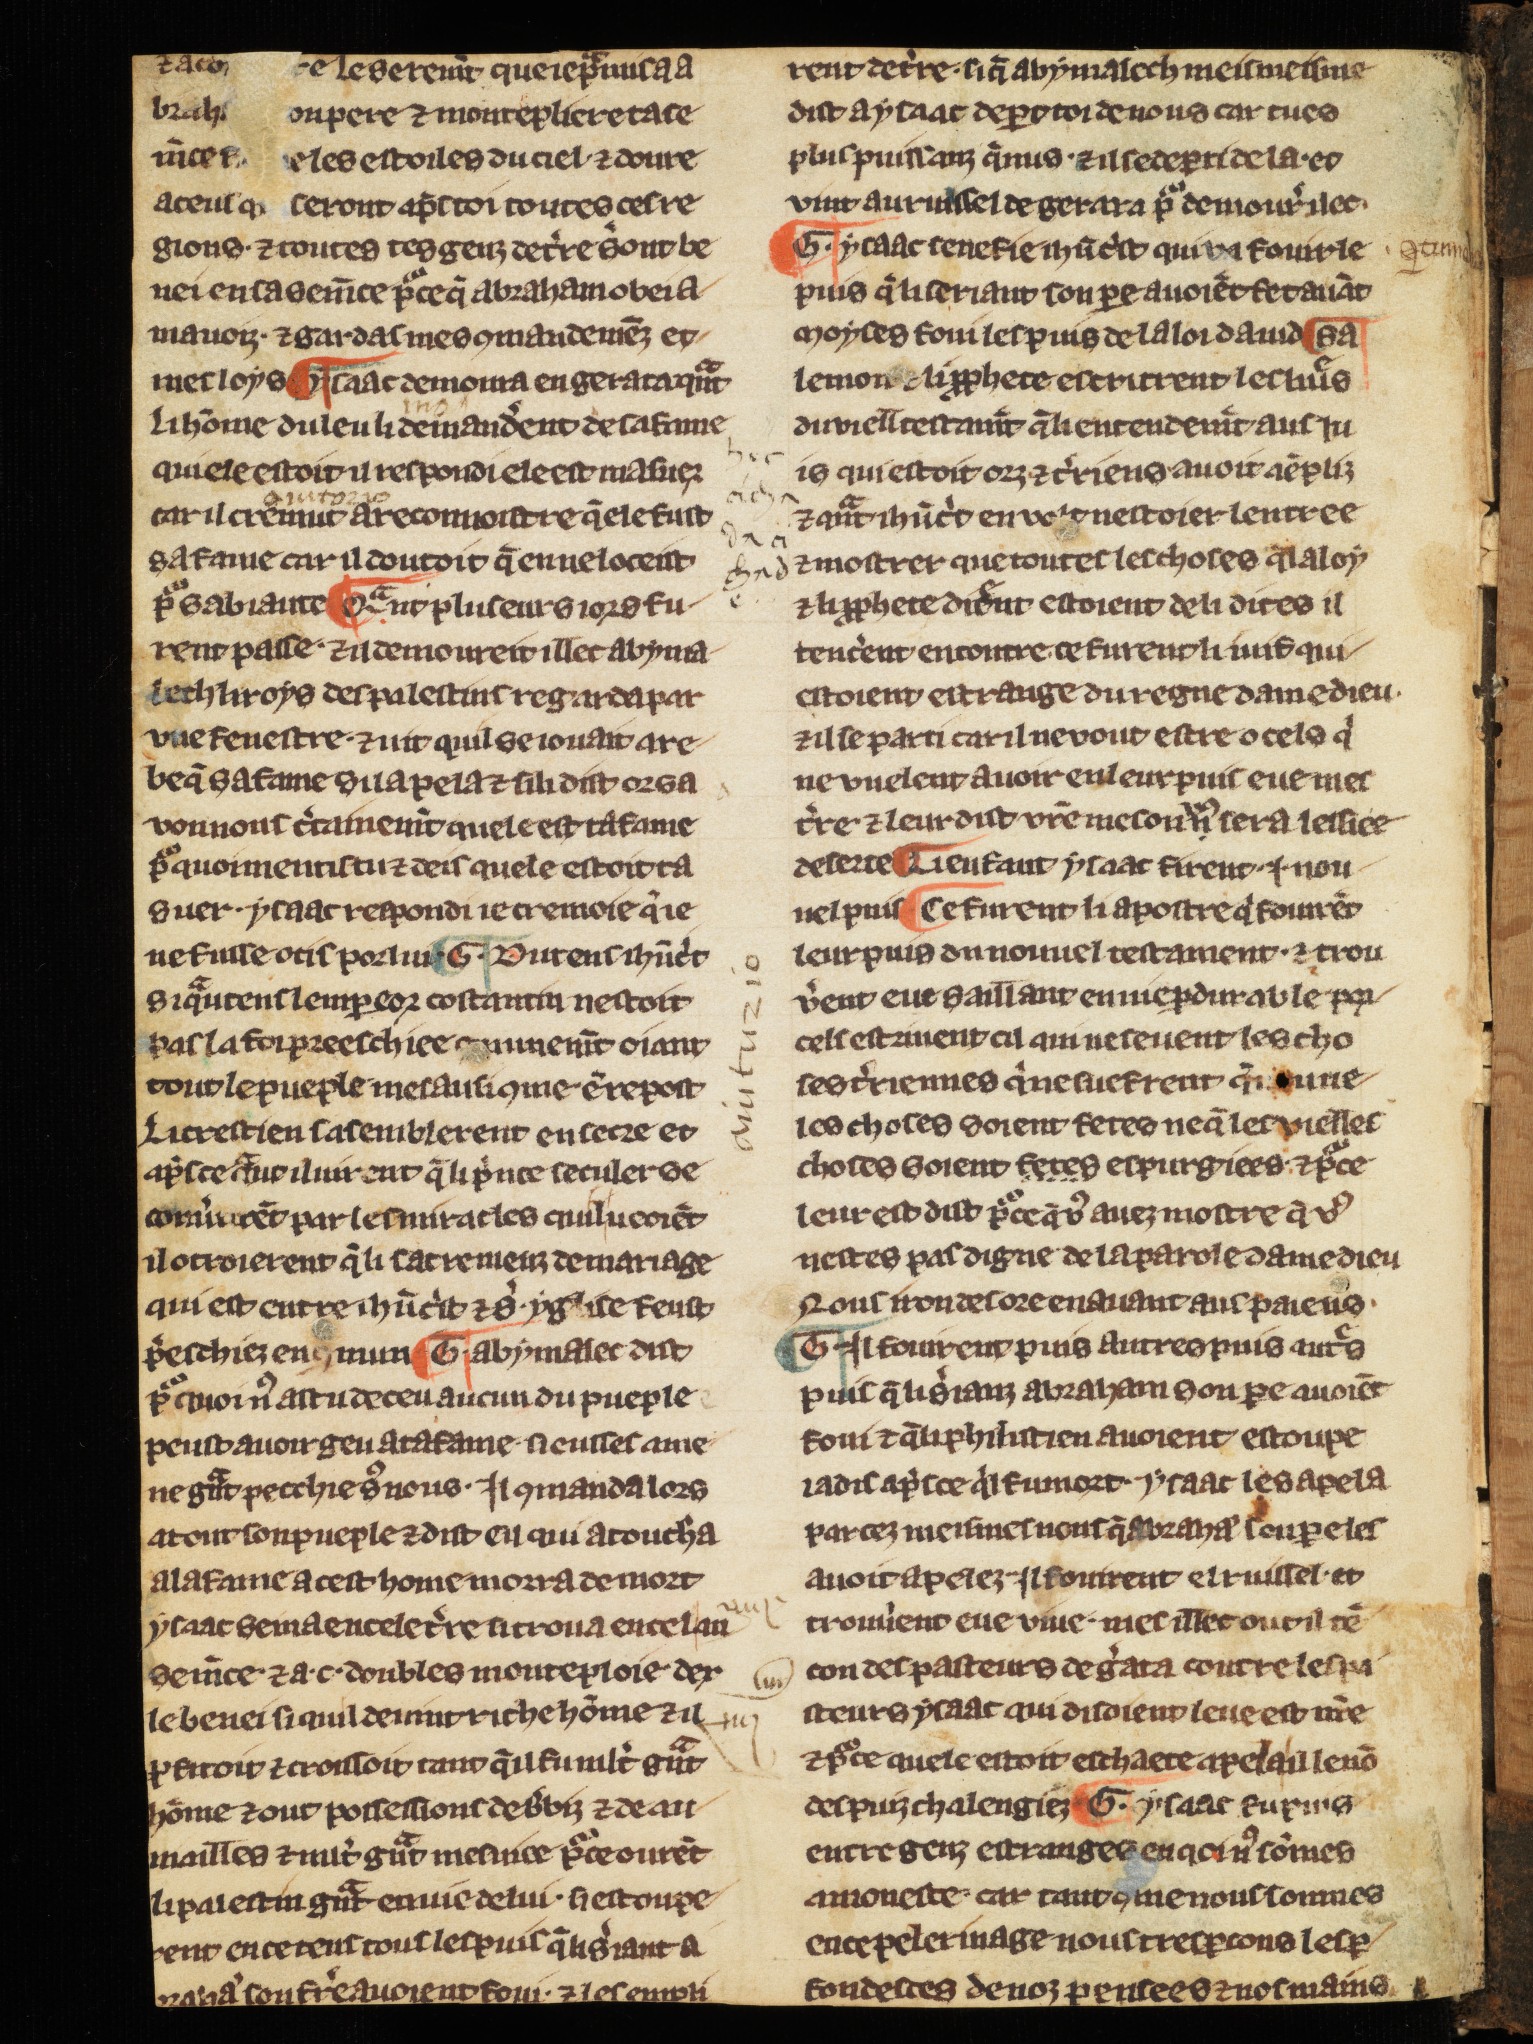 re le serem̃t que ie p̃mis a a
brah onpere ⁊ monteplieretate
m̃ce e les estoiles du ciel · ⁊ donre
a ceus q seront ap̃s toi toutes ces re
gions · ⁊ toutes tes genz de tr̃e s̃ont be
nei en ta sem̃ce p̃ ce q̃ abraham obei a
ma uoiz · ⁊ garda s mes ꝯmandemẽz et
mes loys ysaac demoura en gerara ⁊ q̃nt
li hõme du leu li demand̃ent de sa fame
qui ele estoit il respondi ele est ma suer
car il cremut a reconnoistre q̃ ele fust
sa fame car il doutoit q̃ en ne locent
p̃ sa biaute Qãnt pluseurs iors fu
rent passe · ⁊ il demoureit illec abyma
lech li roys des palestins regarda par
vne fenestre · ⁊ uit quil se iouait a re
beq̃ sa fame si lapela ⁊ si li dist or sa
vonnous c̃tainem̃t quele est ta fame
p̃ quoi mentis tu ⁊ deis quele estoit ta
suer · ysaac respondi ie cremoie q̃ ie
ne fusse ocis por lui · G · Du tens ihũ c̃st
siq̃ au tens lempeor costantin nestoit
pas la foi preeschiee ꝯmunem̃t oiant
tout le pueple mes ausi ꝯme ẽ repost
Li crestien sasemblerent en secre et
ap̃s ce q̃nt il uirent q̃ li p̃nce seculer se
conu̾tirẽt par les miracles quil ueoiẽt
il otroierent q̃ li sacremenz de mariage
qui est entre ihũ c̃st ⁊ s̃ · yglise feust
p̃eschiez en ꝯmun G · abymalec dist
p̃ quoi n̾ as tu deceu aucun du pueple
peust auoir geu a ta fame · si eusses ame
ne gũt pecchie s̾ nous · Il ꝯmanda lors
a tout son pueple ⁊ dist cil qui atouch̾a
a la fame a cest home morra de mort
ysaac sema en cele tr̃e si troua en cel an
sem̃ce · ⁊ a · c · doubles monteploie · dex
le benei si quil deuint riche hõme ⁊ il
p̃fitoit ⁊ croissoit tant q̃l fu mlt̃ gũt
hõme ⁊ out possessions de b̾biz ⁊ de au
mailles ⁊ mlt̃ gũt mesnice p̃ ce ourẽt
li palestin gũt enuie de lui · si estoupe
rent en ce tens tous les puis q̃ li s̃iant a
son fr̃e auoient foui · ⁊ les empli
rent de tr̃e · si q̃ abymalech meismeisme
dist a ysaac depart toi de nous car tu es
plus puissanz q̃ nus · ⁊ il se departi de la · et
vint au ruissel de gerara p̃ demour̾ ilec ·
G · ysaac senefie ihũ c̃st qui va fouir le
puis q̃ li seriant son pe auoiẽt fet auãt
Moyses foui les puis de la loi dauid Sa
lemon li ꝓphete escritrent les liur̃s
du viell testam̃t q̃ li entendem̃t aus iu
is qui estoit orz ⁊ tr̃riens auoit aẽpliz
⁊ q̃nt ihũ c̃st en volt nestoier lentree
⁊ mostrer que toutes les choses q̃ la loy
⁊ li ꝓphete dirẽnt estoient de li dites il
tenc̃ent encontre ce furent li iuif qui
estoient estrange du regne damedieu ·
⁊ il se parti car il ne vout estre o cels q̃
ne vuelent auoir en leur puis eue mes
tr̃e ⁊ leur dist vr̃e meson n̾ sera lessiee
deserte Li enfant ysaac firent · I · nou
uel puis Ce furent li apostre q̃ fouirẽt
leur puis du nouuel testament · ⁊ trou
v̾ent eue saillant en uie perdurable por
cels estriuent cil qui ne seuent les cho
ses tr̃riennes q̃ ne suefrent q̃ nouue
les choses soient fetes ne q̃ les vielles
choses soient fetes espurgiees · ⁊ p̃ ce
leur est dist p̃ ce q̃ v̾ auez mostre q̃ v̾
nestes pas digne de la parole damedieu
Nous iron desore en auant aus paiens ·
G · Il fouirent puis autres puis autr̃s
puis q̃ li s̃ianz abraham son pe auoiẽt
foui ⁊ q̃ li philistien auoient estoupe
iadis ap̃s ce q̃l fu mort · ysaac les apela
par cez meismes nons q̃ abrahã son pe les
auoit apelez · Il fouirent el ruissel · et
trouu̾ent eue viue · mes illec out il tẽ
con des pasteurs de g̃ara contre les pa
steurs ysaac qui disoient leue est nr̃e
⁊ p̃ ce quele estoit eschaete apela il le nõ
des puiz chalengiez G · ysaac fu puis
entre genz estranges en qoi n̾ sõmes
amoneste · car tant ꝯme nous sommes
en ce pelerinage nous trespcons les p̃
fondesces de noz pensees ⁊ nos mains
aiutorio
aiutuzio